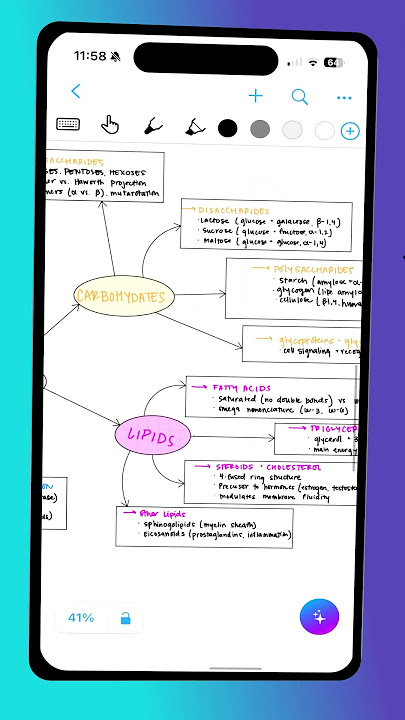 11:58
64
SACCHARIDES
PENTOSES, HEXOSES
vs. Haworth Projection
(α vs. β), mutarotation
→ DISACCHARIDES
· Lactose (glucose + galactose, β-1,4)
· Sucrose (glucose + fructose, α-1,2)
· Maltose (glucose + glucose, α-1,4)
CARBOHYDATES
→ POLYSACCHARIDES
· starch (amylose
· glycogen (like amylo
· cellulose (β1,4, huma
→ glycoproteins + gly
· cell signaling + recog
→ FATTY ACIDS
· saturated (no double bonds) vs
· omega nomenclature (ω-3, ω-6)
LIPIDS
→ TRIGLYCER
glycerol + 3
· main energy
→ STEROIDS + CHOLESTEROL
· 4-fused ring structure
· Precuser to hormones (estrogen, testoste
· modulates membrane fluidity
→ other Lipids
· sphinogolipids (myelin sheath)
· eicosanoids (prostaglandins, inflammation)
ON
ase)
ds)
41%